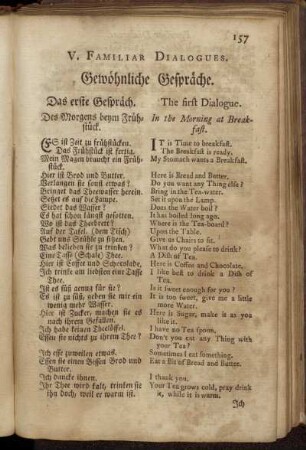 157
V. FAMILIAR DIALOGUES.
Gewöhnliche Gespräche.
Das erste Gespräch.
Des Morgens beym Früh-
stück.
ES ist Zeit zu frühstücken.
Das Frühstück ist fertig.
Mein Magen braucht ein Früh-
stück.
Hier ist Brod und Butter.
Verlangen sie sonst etwas?
Bringet das Theewasser herein.
Setzet es auf die Lampe.
Siedet das Wasser?
Es hat schon längst gesotten.
Wo ist das Theebrett?
Auf der Tafel. (dem Tisch)
Gebt uns Stühle zu sitzen.
Was belieben sie zu trinken?
Eine Tasse (Schale) Thee.
Hier ist Coffee und Schocolade.
Ich trinke am liebsten eine Tasse
Thee.
Ist es süß genug für sie?
Es ist zu süß, geben sie mir ein
wenig mehr Wasser.
Hier ist Zucker, machen sie es
nach ihrem Gefallen.
Ich habe keinen Theelöffel.
Essen sie nichts zu ihrem Thee?
Ich esse zuweilen etwas.
Essen sie einen Bissen Brod und
Butter.
Ich dancke ihnen.
Ihr Thee wird kalt, trinken sie
ihn doch, weil er warm ist.
The first Dialogue.
In the Morning at Break-
fast.
IT is Time to breakfast.
The Breakfast is ready.
My Stomach wants a Breakfast.
Here is Bread and Butter.
Do you want any Thing else?
Bring in the Tea-water.
Set it upon the Lamp.
Does the Water boil?
It has boiled long ago.
Where is the Tea-board?
Upon the Table.
Give us Chairs to sit.
What do you please to drink?
A Dish of Tea.
Here is Coffee and Chocolate.
I like best to drink a Dish of
Tea.
Is it sweet enough for you?
It is too sweet, give me a little
more Water.
Here is Sugar, make it as you
like it.
I have no Tea spoon.
Don't you eat any Thing with
your Tea?
Sometimes I eat something.
Eat a Bit of Bread and Butter.
I thank you.
Your Tea grows cold, pray drink
it, while it is warm.
Ich